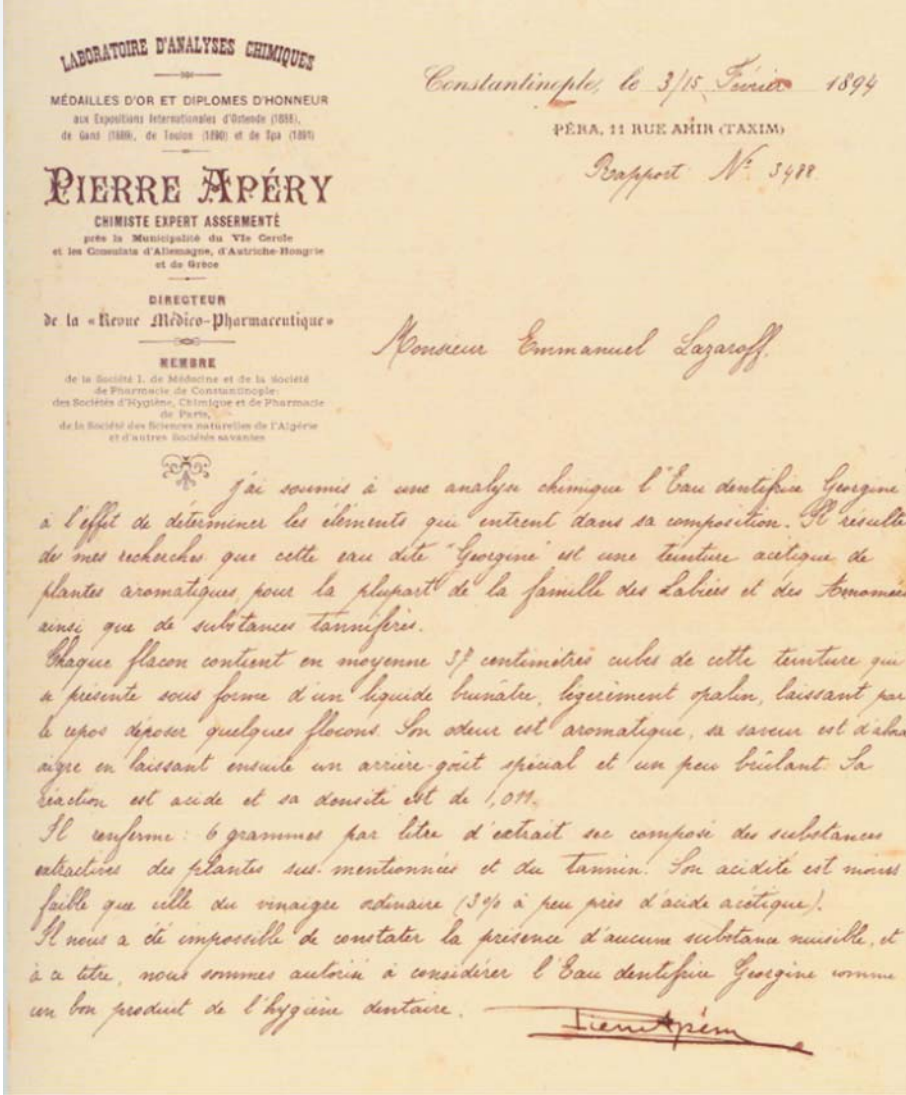 LABORATOIRE D'ANALYSES CHIMIQUES
MÉDAILLES D'OR ET DIPLOMES D'HONNEUR
aux Expositions Internationales d'Ostende (1888),
de Gand (1889), de Toulon (1890) et de Spa (1891)
PIERRE APÉRY
CHIMISTE EXPERT ASSERMENTÉ
près la Municipalité du VIe Cercle
et les Consulats d'Allemagne, d'Autriche-Hongrie
et de Grèce
DIRECTEUR
de la « Revue Médico-Pharmaceutique »
MEMBRE
de la Société I. de Médecine et de la Société
de Pharmacie de Constantinople:
des Sociétés d'Hygiène, Chimique et de Pharmacie
de Paris,
de la Société des Sciences naturelles de l'Algérie
et d'autres Sociétés savantes
Constantinople, le 3/15 Février 1894
PÉRA, 11 RUE AMIR (TAXIM)
Rapport No 3488
Monsieur Emmanuel Lazaroff.
J'ai soumis à une analyse chimique l'Eau dentifrice Georgine
à l'effet de déterminer les éléments qui entrent dans sa composition. Il résulte
de mes recherches que cette eau dite "Georgine" est une teinture acétique de
plantes aromatiques, pour la plupart de la famille des Labiées et des Amomées
ainsi que de substances tannifères.
Chaque flacon contient en moyenne 37 centimètres cubes de cette teinture qui
se présente sous forme d'un liquide brunâtre, légèrement opalin, laissant par
le repos déposer quelques flocons. Son odeur est aromatique, sa saveur est d'abo
aigre en laissant ensuite un arrière-goût spécial et un peu brûlant. Sa
réaction est acide et sa densité est de 1,011.
Il renferme: 6 grammes par litre d'extrait sec composé des substances
extractives des plantes sus-mentionnées et du tannin. Son acidité est moins
faible que celle du vinaigre ordinaire (3% à peu près d'acide acétique).
Il nous a été impossible de constater la présence d'aucune substance nuisible, et
à ce titre, nous sommes autorisé à considérer l'Eau dentifrice Georgine comme
un bon produit de l'hygiène dentaire.
Pierre Apéry